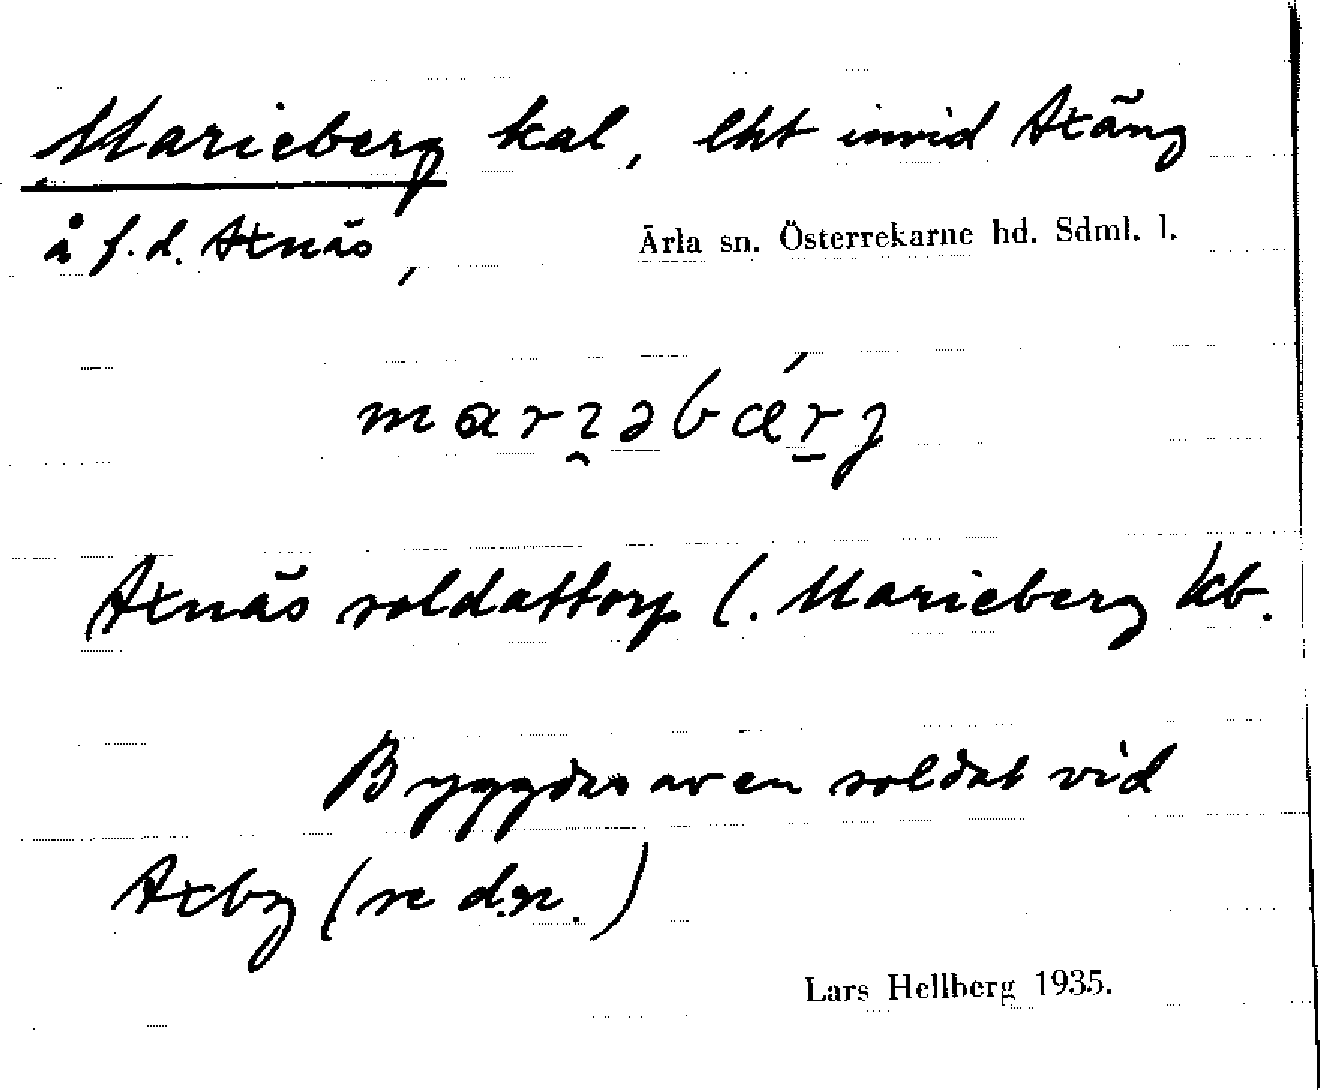 Marieberg kal, lht invid Axäng
å f.d. Axnäs,
Ärla sn. Österrekarne hd. Sdml. l.
marɪ̯əbǽrg
Axnäs soldattorp l. Marieberg kb.
Byggdes av en soldat vid
Axby (se d:o.)
Lars Hellberg 1935.